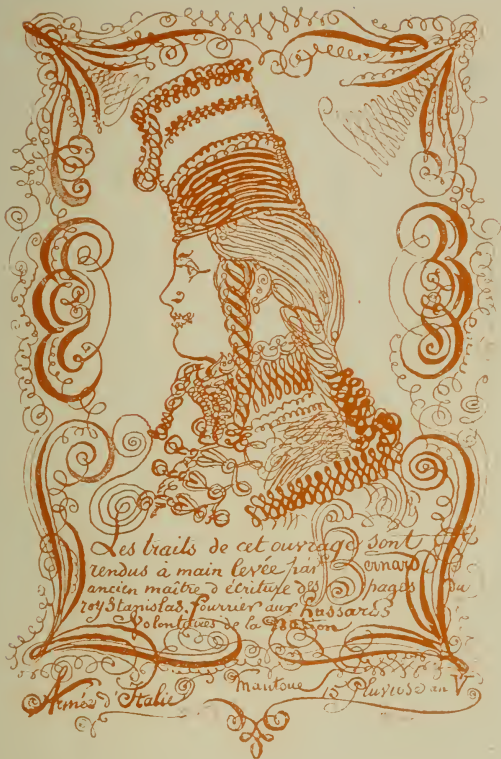 Les traits de cet ouvrage sont
rendus à main levée par Bernard
ancien maître d'écriture des pages du
roy Stanislas. fourrier aux hussards
Volontaires de la Nation
Armée d'Italie Mantoue Pluviose an V